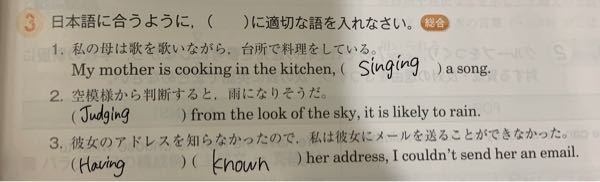 3 日本語に合うように，（　　）に適切な語を入れなさい。 総合
1. 私の母は歌を歌いながら，台所で料理をしている。
My mother is cooking in the kitchen, ( Singing ) a song.
2. 空模様から判断すると，雨になりそうだ。
( Judging ) from the look of the sky, it is likely to rain.
3. 彼女のアドレスを知らなかったので，私は彼女にメールを送ることができなかった。
( Having ) ( known ) her address, I couldn't send her an email.